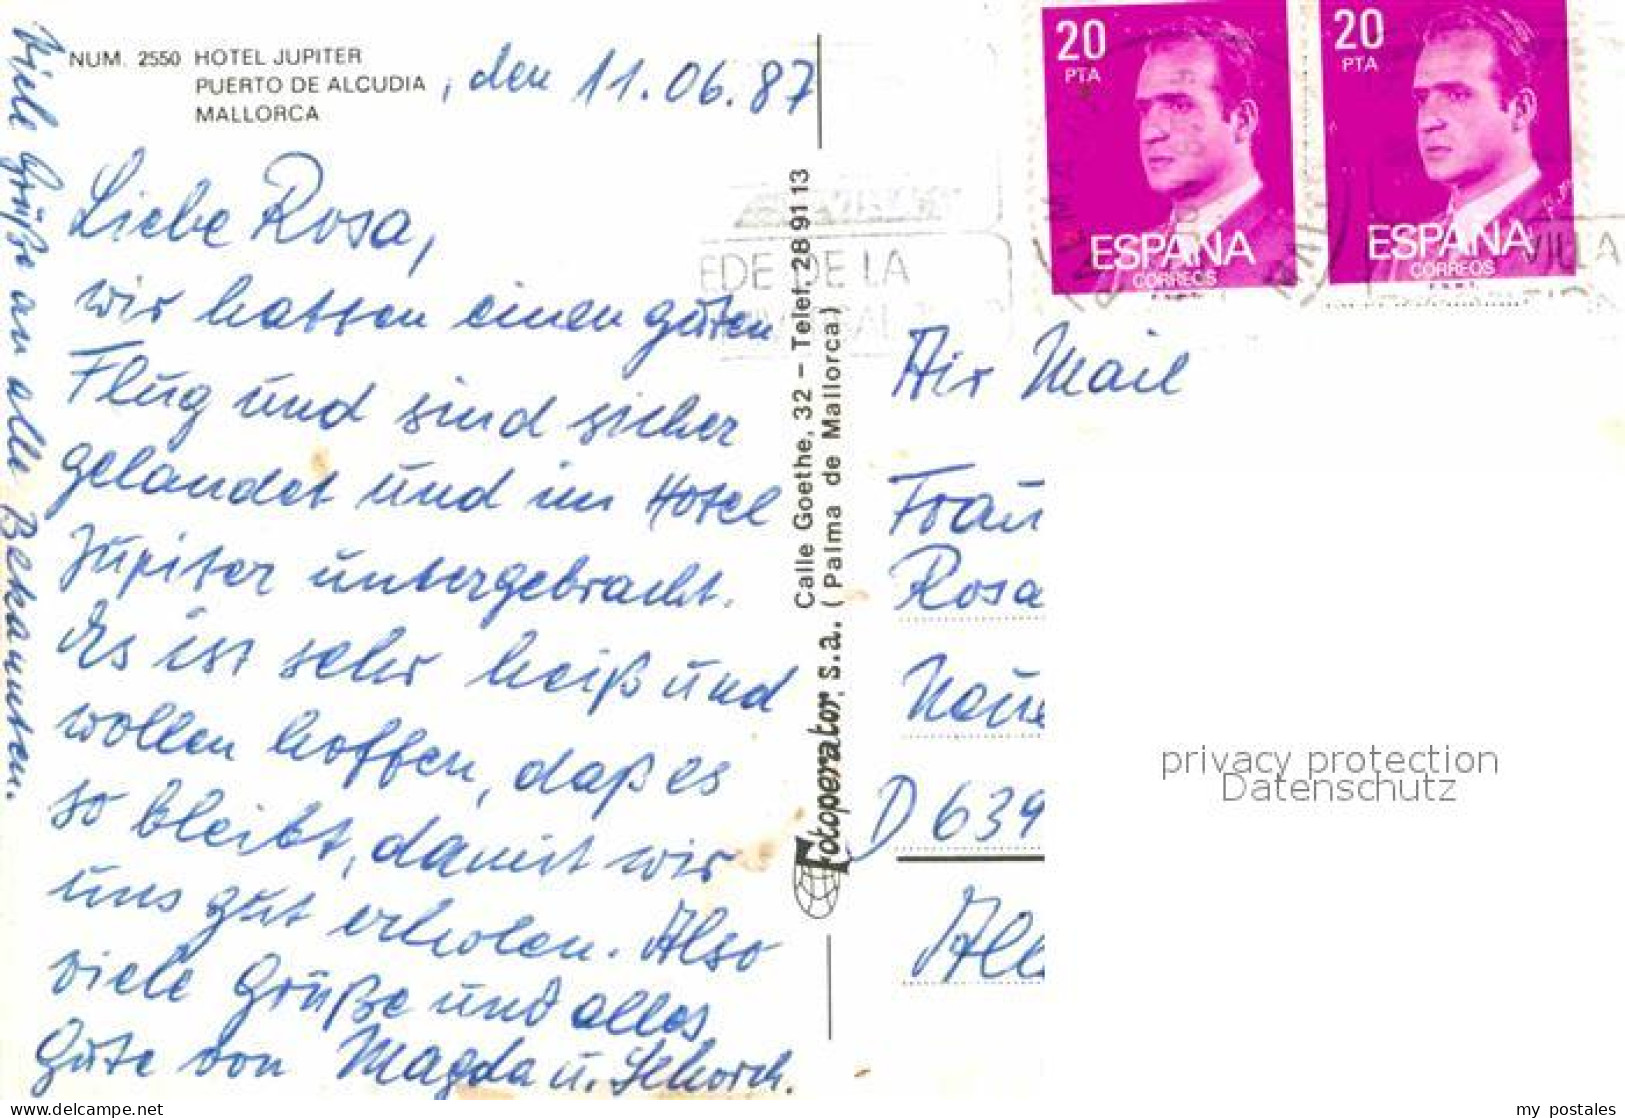 NUM. 2550 HOTEL JUPITER
PUERTO DE ALCUDIA
MALLORCA
, den 11.06.87
Liebe Rosa,
wir hatten einen guten
Flug und sind sicher
gelandet und im Hotel
Jupiter untergebracht.
Es ist sehr heiß und
wollen hoffen, daß es
so bleibt, damit wir
uns gut erholen. Also
viele Grüße und alles
Gute von Magda u.
Viele Grüße an alle Bekannten.
Calle Goethe, 32 - Telef. 28 91 13
Fotoperator, s.a. (Palma de Mallorca)
20
PTA
ESPAÑA
CORREOS
F.N.M.T.
20
PTA
ESPAÑA
CORREOS
F.N.M.T.
EDE DE LA
VILLA
Air Mail
Frau
Rosa
D 639
privacy protection
Datenschutz
my postales